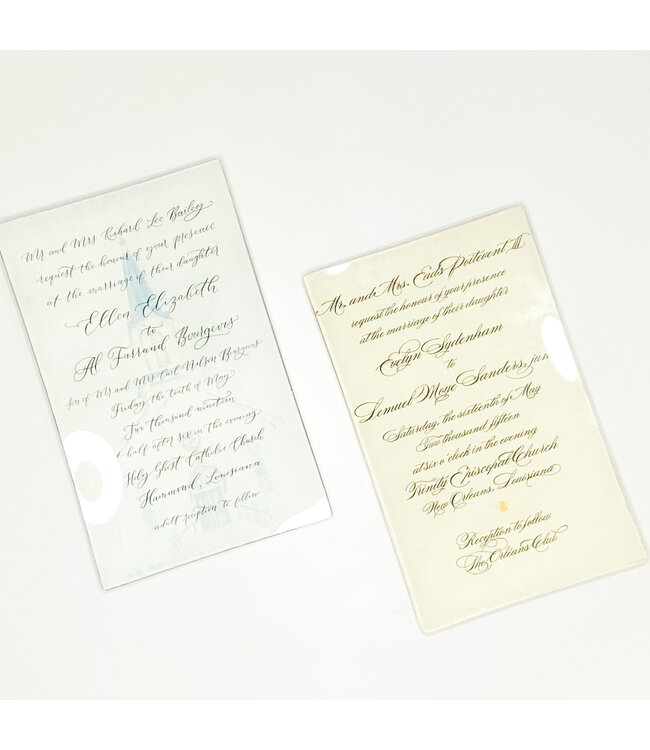 Mr and Mrs Richard Lee Bailey
request the honour of your presence
at the marriage of their daughter
Ellen Elizabeth
to
Al Farrand Bourgeois
Son of Mr and Mrs Carl Nelson Bourgeois
Friday, the tenth of May
Two thousand nineteen
half after six in the evening
Holy Ghost Catholic Church
Hammond, Louisiana
adult reception to follow
Mr. and Mrs. Eads Poitevent III
request the honour of your presence
at the marriage of their daughter
Evelyn Sydenham
to
Lemuel Moye Sanders, jun
Saturday, the sixteenth of May
Two thousand fifteen
at six o'clock in the evening
Trinity Episcopal Church
New Orleans, Louisiana
Reception to follow
The Orléans Club